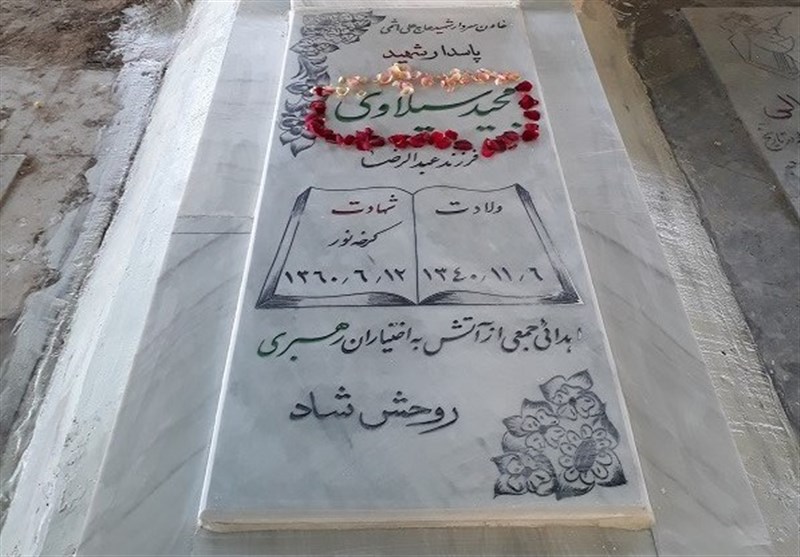 معاون سردار شهید حاج علی هاشمی
پاسدار شهید
مجید سیلاوی
فرزند عبدالرضا
ولادت
۱۳۴۰٫۱۱٫۶
شهادت
کرخه نور
۱۳۶۰٫۶٫۱۲
اهدائی جمعی از آتش به اختیاران رهبری
روحش شاد